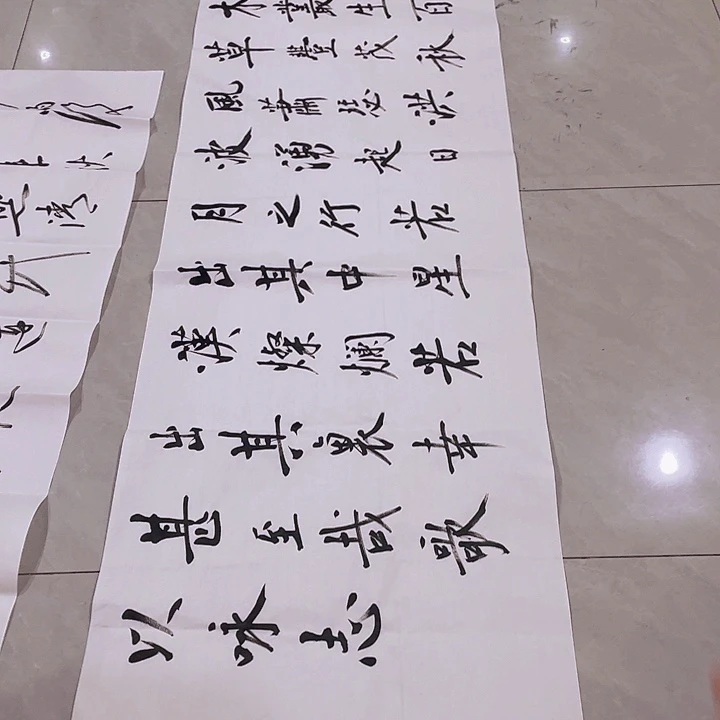 木叢生百
草豐茂秋
風蕭瑟洪
波湧起日
月之行若
出其中星
漢燦爛若
出其裏幸
甚至哉歌
以咏志